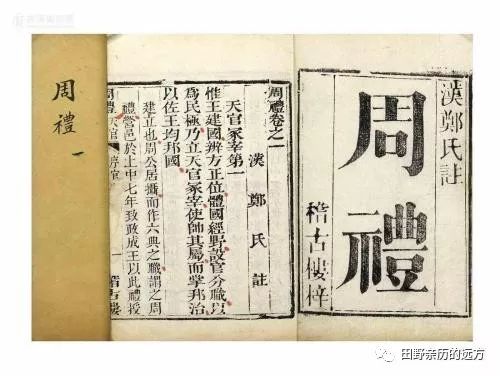 漢鄭氏註
周禮
稽古樓梓
周禮卷之一
漢 鄭氏註
天官冢宰第一
惟王建國辨方正位體國經野設官分職以
爲民極乃立天官冢宰使帥其屬而掌邦治
以佐王均邦國
建立也周公居攝而作六典之職謂之周
禮營邑於土中七年致政成王以此禮授
周禮 天官 序官 一 稽古樓
周禮 一
田野亲历的远方